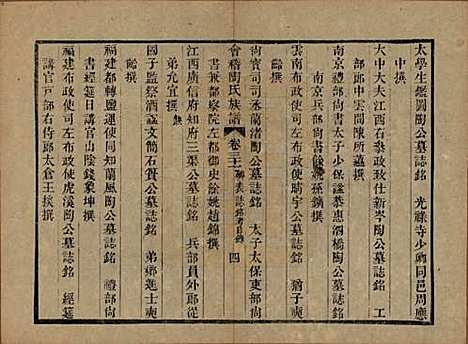 太學生鑑湖陶公墓誌銘　光祿寺少卿同邑周應
中撰
大中大夫江西右叅政歴新岑陶公墓誌銘　工
部郎中雲間陳所蘊撰
南京禮部尚書贈太子少保諡恭惠泗橋陶公墓誌銘
南京兵部尚書餘姚孫鑛撰
雲南布政使司左布政使晹宇公墓誌銘　猶子奭
齡撰
尚寶司司丞蘭渚陶公墓誌銘　太子太保吏部尚
會稽陶氏族譜　卷三十　四
書兼都察院左都御史餘姚趙錦撰
江西廣信府司三渠公墓誌銘　兵部員外郎從
弟允宜撰
國子監祭酒諡文簡石簣公墓誌銘　弟鄉進士奭
齡撰
福建都轉鹽運使同知蘭風陶公墓誌銘　禮部尚
書經筵日講官山陰錢象坤撰
福建布政使司左布政使虎溪陶公墓誌銘　經筵
講官戸部右侍郎太倉王掞撰